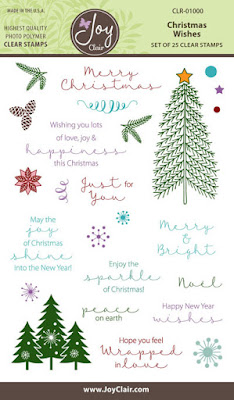 MADE IN THE U.S.A.
HIGHEST QUALITY
PHOTO POLYMER
CLEAR STAMPS
Joy
Clair
CLR-01000
Christmas
Wishes
SET OF 25 CLEAR STAMPS
Merry
Christmas
Wishing you lots
of love, joy &
happiness
this Christmas
Just for
You
May the
joy
of Christmas
shine
into the New Year!
Merry
&
Bright
Enjoy the
sparkle
of Christmas!
Noel
peace
on earth
Happy New Year
wishes
Hope you feel
Wrapped
in love
www.JoyClair.com